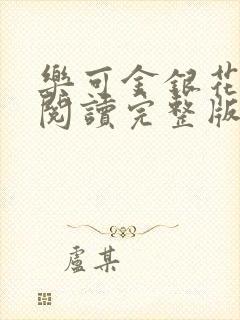 樂可金銀花
閱讀完整版
盧某